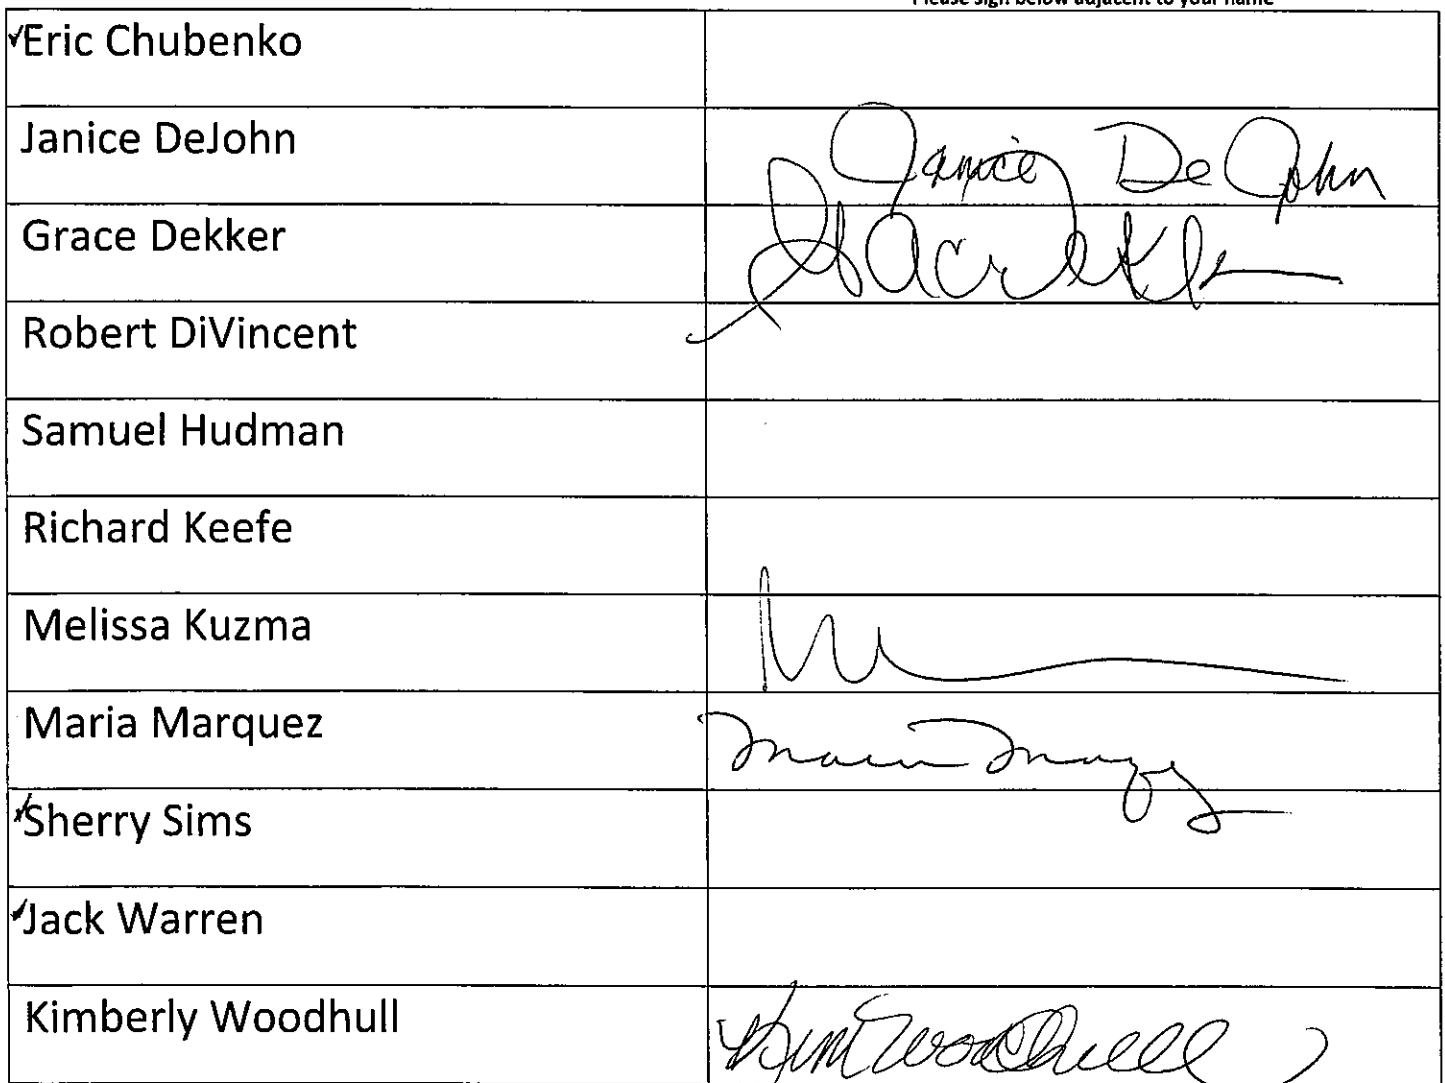 Please sign below adjacent to your name
✓Eric Chubenko
Janice DeJohn Janice DeJohn
Grace Dekker
Robert DiVincent
Samuel Hudman
Richard Keefe
Melissa Kuzma
Maria Marquez
✓Sherry Sims
✓Jack Warren
Kimberly Woodhull Kim Woodhull